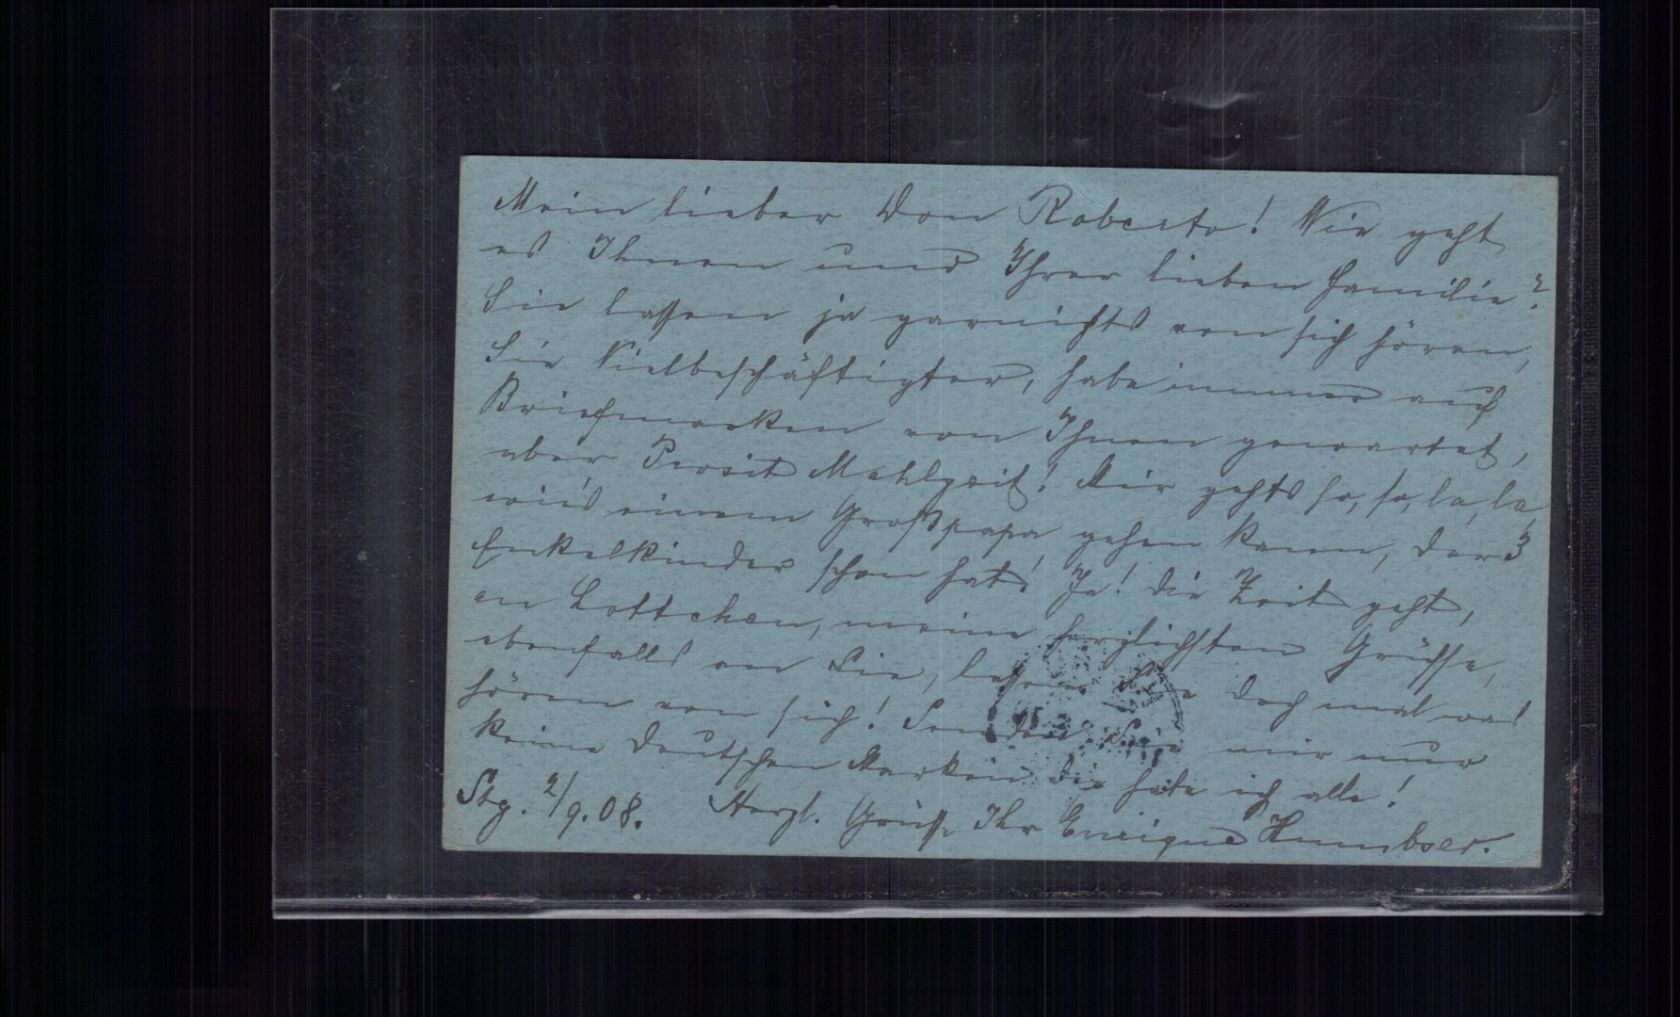 Mein lieber Don Roberto! Wie geht
es Ihnen und Ihrer lieben Familie?
Sie lassen ja garnichts von sich hören,
Sie Vielbeschäftigter, habe immer auf
Briefmarken von Ihnen gewartet,
aber Prosit Mahlzeit! Mir gehts so, so, la, la,
wie's einem Großpapa gehen kann, der 3
Enkelkinder schon hat! Ja! die Zeit geht,
an Lottchen, meine herzlichsten Grüsse,
ebenfalls an Sie, lassen Sie doch mal was
hören von sich! Senden Sie mir nur
keine Deutschen Marken die habe ich alle!
Stg. 2/9.08. Herzl. Grüsse Ihr Enrique Humbser.